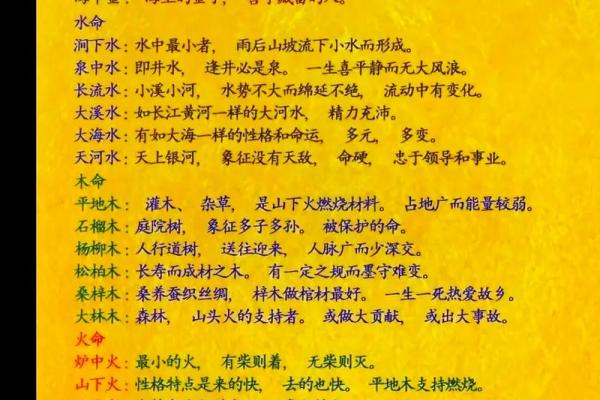 水命
涧下水：水中最小者， 雨后山坡流下小水而形成。
泉中水：即井水， 逢井必是泉。 一生喜平静而无大风浪。
长流水：小溪小河， 水势不大而绵延不绝， 流动中有变化。
大溪水：如长江黄河一样的大河水， 精力充沛。
大海水：有如大海一样的性格和命运， 多元， 多变。
天河水：天上银河， 象征没有天敌， 命硬， 忠于领导和事业。
木命
平地木： 灌木、 杂草， 是山下火燃烧材料。 占地广而能量较弱。
石榴木：庭院树， 象征多子多孙。 被保护的命。
杨柳木：人行道树， 送往迎来， 人脉广而少深交。
松柏木：长寿而成材之木。 有一定之规而墨守难变。
桑梓木：桑养蚕织丝绸， 梓木做棺材最好。 一生一死热爱故乡。
大林木：森林， 山头火的支持者。 或做大贡献， 或出大事故。
火命
炉中火：最小的火， 有柴则着， 无柴则灭。
山下火：性格特点是来的快， 去的也快。 平地木支持燃烧。